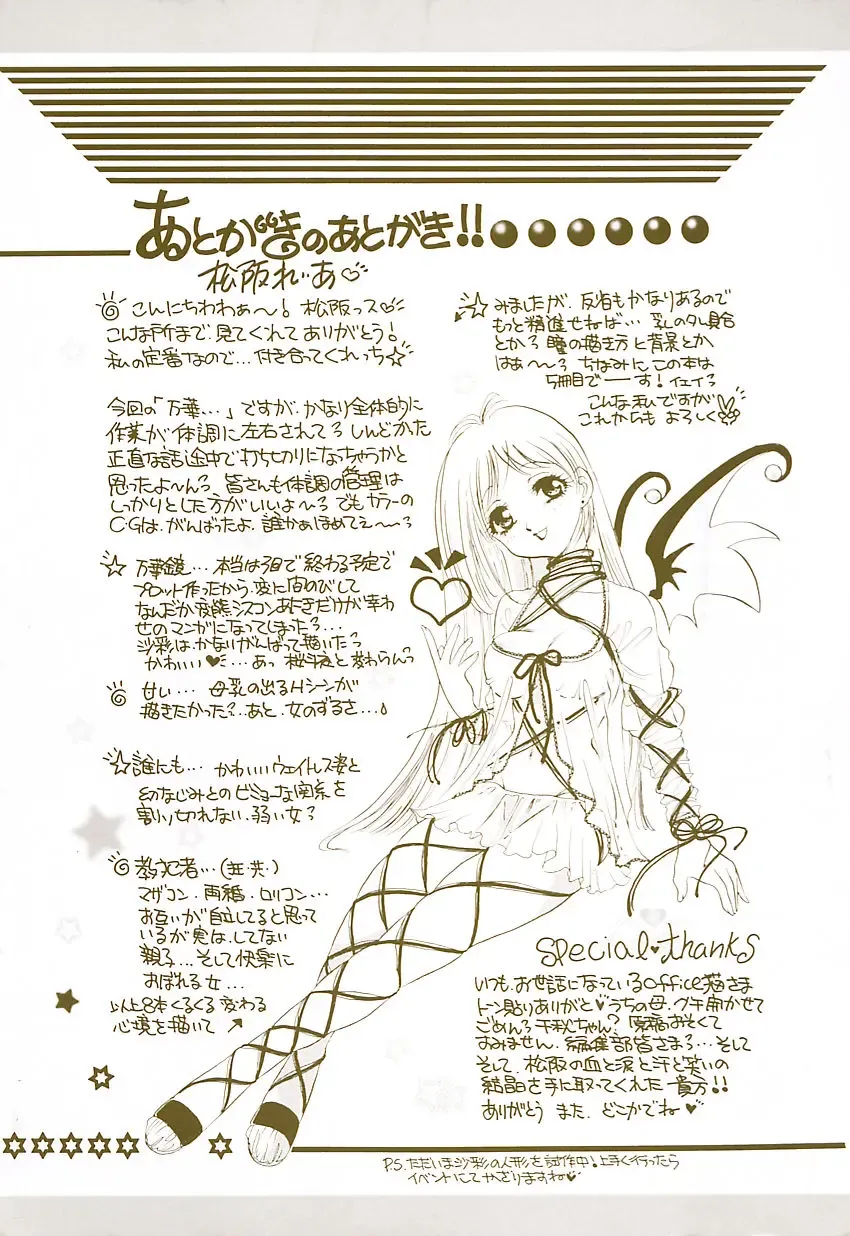 あとがきのあとがき!!
松阪れいあ♡
こんにちわわぁ〜! 松阪っス♡
こんな所まで、見てくれてありがとう!
私の定番なので…付き合ってくれっち☆
今回の「万華…」ですが、かなり全体的に
作業が体調に左右されてるしんどかた
正直な話途中で打ち切りになっちゃうかと
思ったよ〜んっ 皆さんも体調の管理は
しっかりとした方がいいよ〜っ でもカラーの
C・Gは、がんばったよ、誰かぁほめてぇ〜っ
☆万華鏡…本当は3回で終わる予定で
プロット作ったから、変に間のびして
なんだか変態シスコンあにきだけが幸わ
せのマンガになってしまった?…
沙彩は、かなりがんばって描いたっ
かわいい♥…あっ
甘い… 母乳の出るHシーンが
描きたかった?…あと、女のずるさ…♪
☆誰にも… かわいいウェイトレス姿と
幼なじみとのビミョーな関系を
割り切れない、弱い女っ
マザコン、再婚、ロリコン…
お互いが自立してると思って
いるが実は、してない
親子…そして快楽に
おぼれる女…
以上8本くるくる変わる
心境を描いて↗
☆みましたが、反省もかなりあるので
もっと精進せねば…乳のタレ具合
とかっ 瞳の描き方に背景とか
はぁ〜〜っ ちなみにこの本は
5冊目でーーす! イェイっ
こんな私ですが
これからも よろしく
special♥thanks
いつも、お世話になっているoffice猫さま
トーン貼りありがと♥うちの母、グチ聞かせて
ごめんっ 千秋ちゃん? 原稿おそくて
すみません、編集部皆さまっ…そして
そして、松阪の血と涙と汗と笑いの
結晶を手に取ってくれた 貴方!!
ありがとう また、どこかでね♥
P.S.ただいま沙彩の人形を試作中! 上手く行ったら
イベントにてかざりますね♡